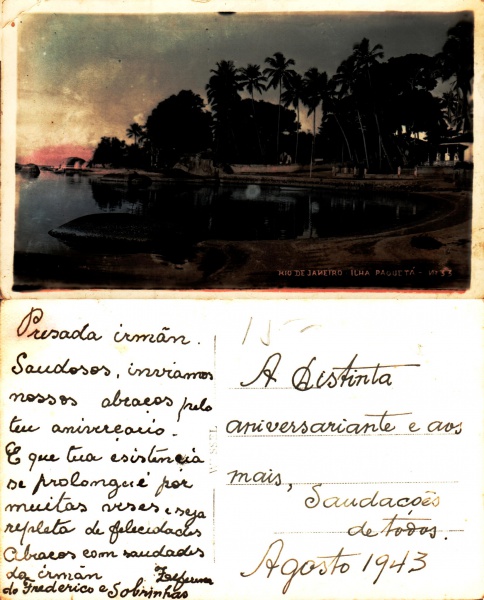 RIO DE JANEIRO ILHA PAQUETÁ - Nº 33
Presada irmãn.
Saudosos, inviamos
nossos abraços, pelo
teu aniverçario.
E que tua esistência
se prolongue por
muitas veses e seja
repleta de felecidades
Abraços com saudades
da irmãn
do Frederico e Sobrinhos
15-
A Distinta
aniversariante e aos
mais,
Saudações
de todos.-
Agosto 1943